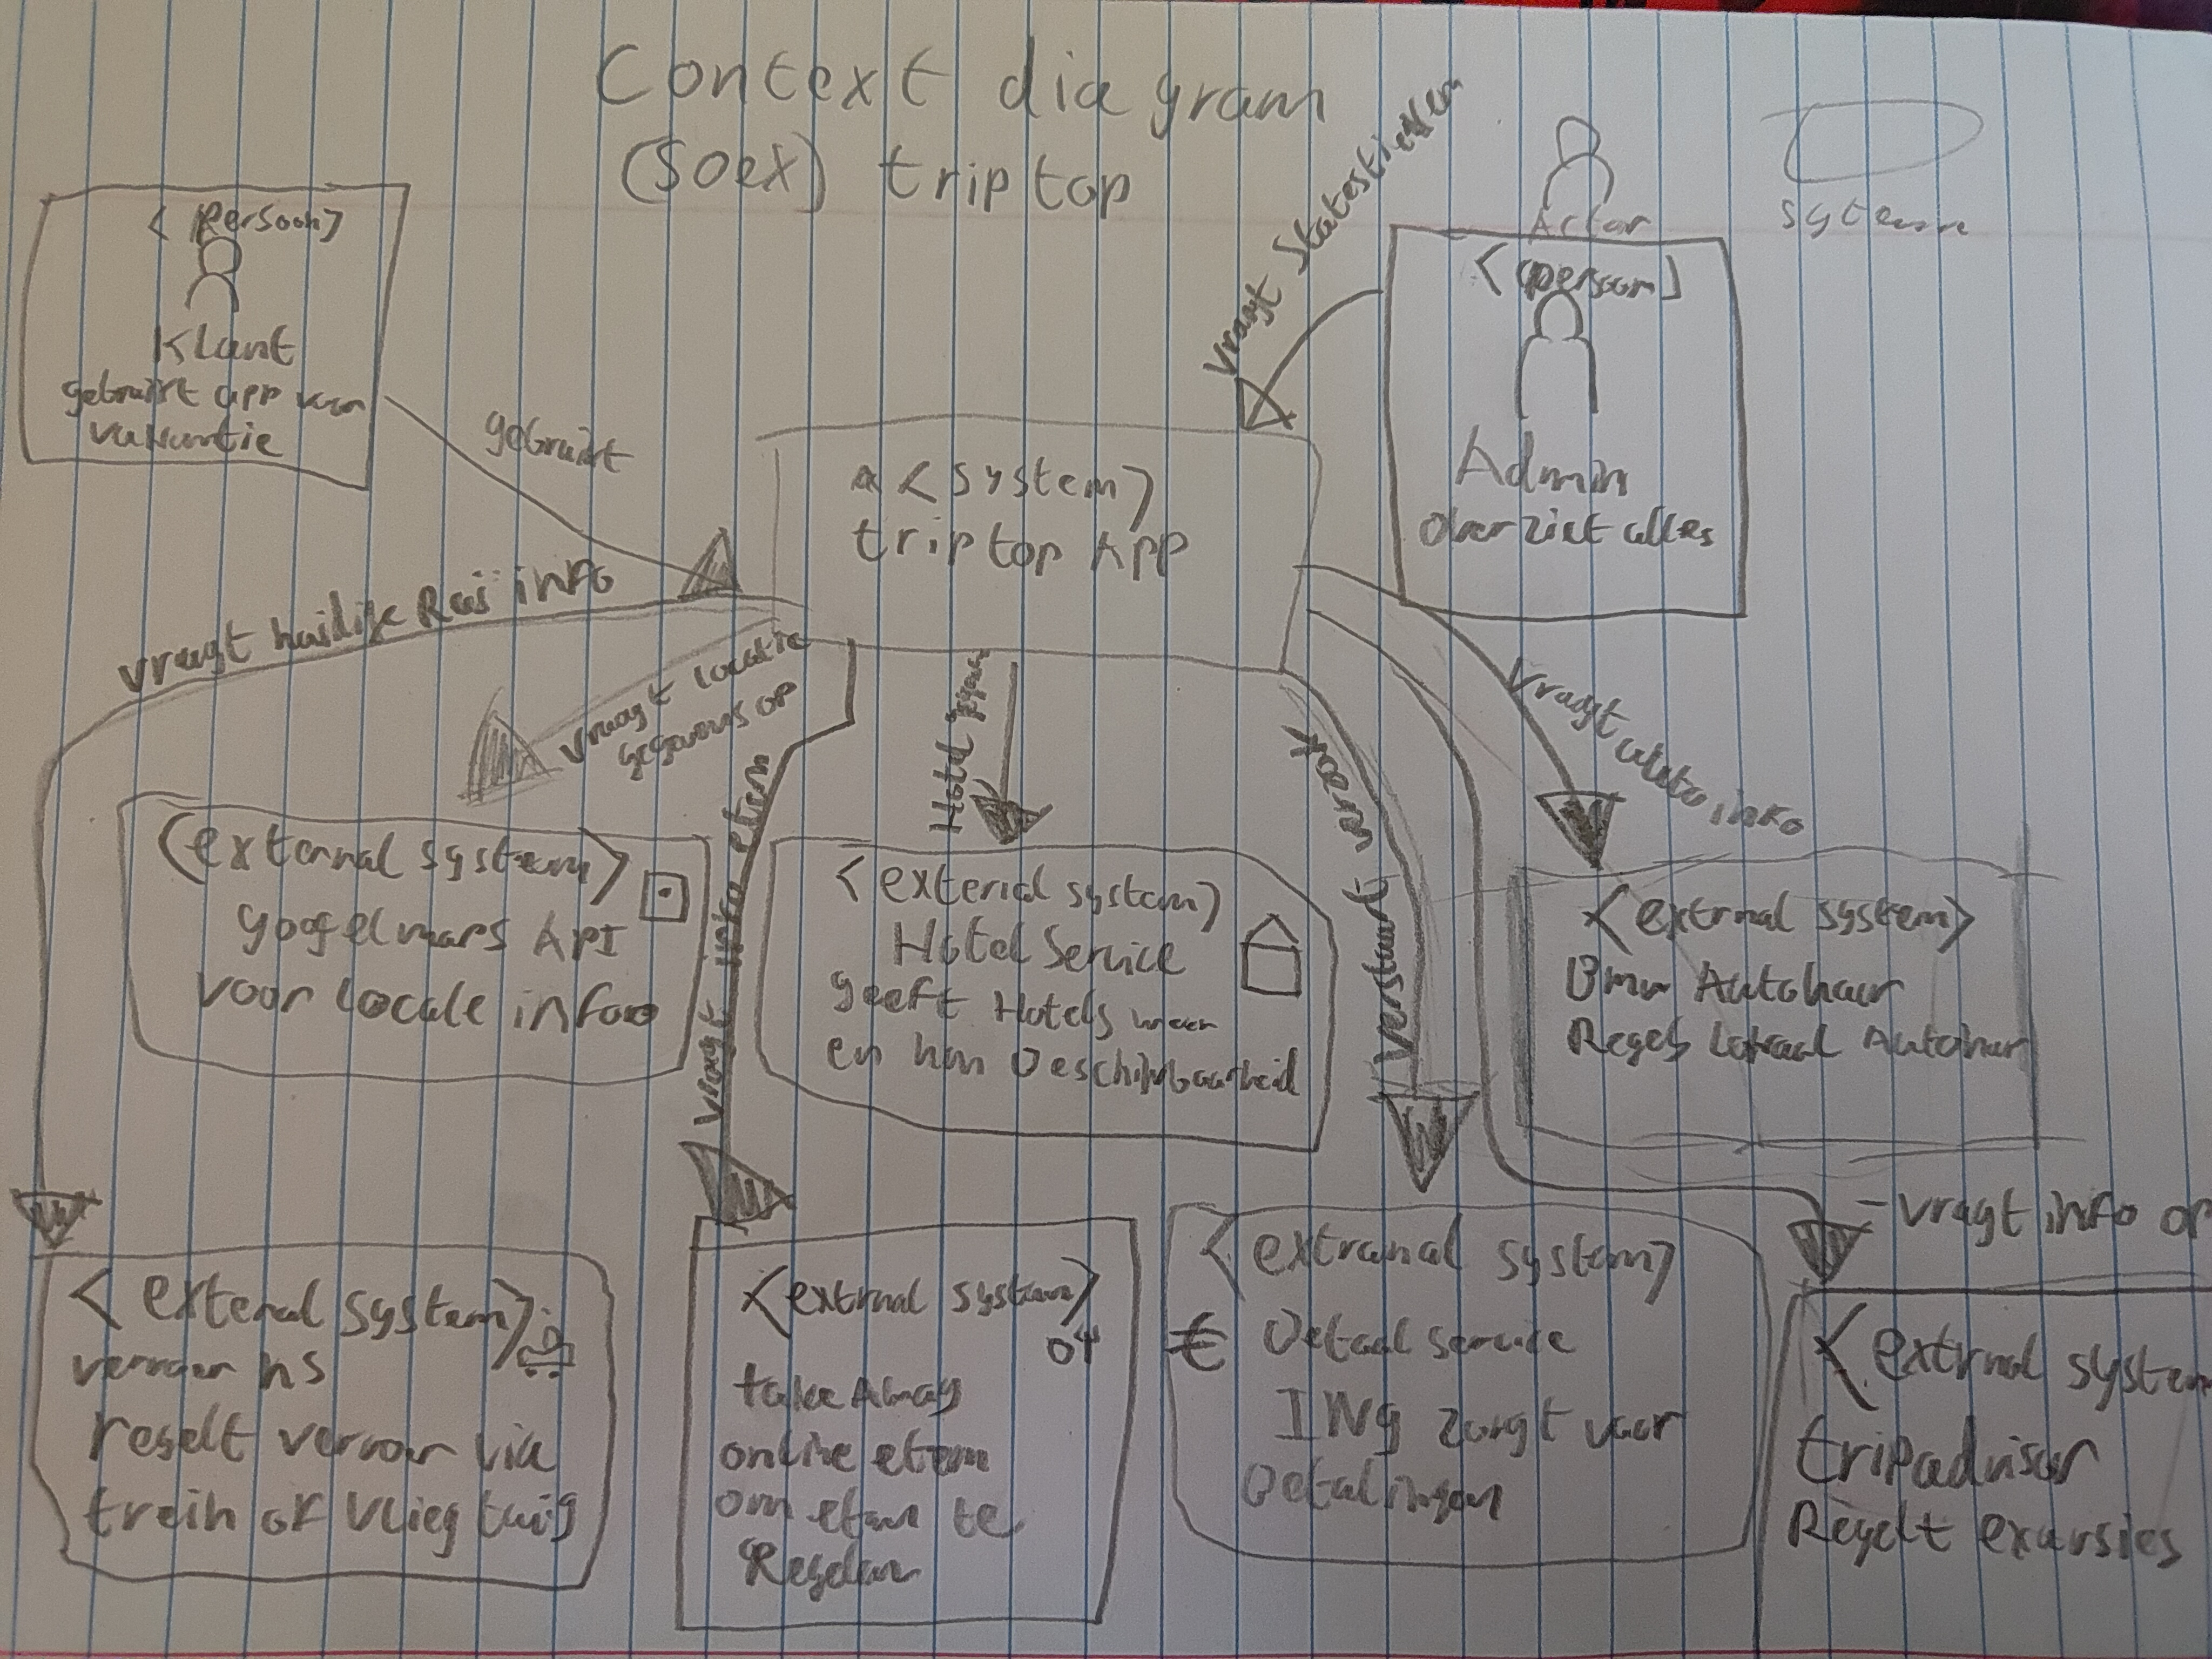 Context diagram
(SOEX) triptop
Actor
system
<persoon>
Klant
gebruikt app voor
vakantie
gebruikt
vraagt statestieken
<persoon>
Admin
overziet alles
<system>
triptop App
vraagt huidige Reis info
vraagt locatie
gegevens op
vraagt info eten
Hotel
Verstuurt verzoek
vragt auto info
(external system>
googelmaps API
voor locale info
<external system>
Hotel Service
geeft Hotels weer
en hun Beschikbaarheid
<extrnal system>
Bmw Autohuur
Regelt Lokaal Autohuur
- vragt info op
<exteral system>
vervoer ns
regelt vervoer via
trein of vliegtuig
<extrnal system>
take Away
online eten
om eten te
Regelen
<extranal system>
€ Betaal service
ING zorgt voor
Betalingen
<extrnal system
tripadvisor
Regelt excursies